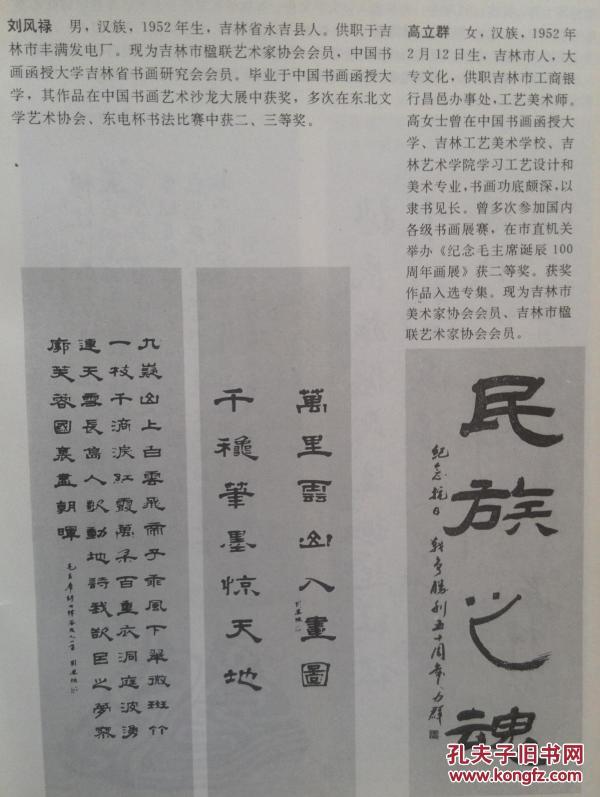 刘风禄 男，汉族，1952年生，吉林省永吉县人。供职于吉
林市丰满发电厂。现为吉林市楹联艺术家协会会员，中国书
画函授大学吉林省书画研究会会员。毕业于中国书画函授大
学，其作品在中国书画艺术沙龙大展中获奖，多次在东北文
学艺术协会、东电杯书法比赛中获二、三等奖。
高立群 女，汉族，1952年
2月12日生，吉林市人，大
专文化，供职吉林市工商银
行昌邑办事处，工艺美术师。
高女士曾在中国书画函授大
学、吉林工艺美术学校、吉
林艺术学院学习工艺设计和
美术专业，书画功底颇深，以
隶书见长。曾多次参加国内
各级书画展赛，在市直机关
举办《纪念毛主席诞辰100
周年画展》获二等奖。获奖
作品入选专集。现为吉林市
美术家协会会员、吉林市楹
联艺术家协会会员。
九嶷山上白雲飛帝子乘風下翠微斑竹
一枝千滴淚紅霞萬朵百重衣洞庭波湧
連天雪長島人歌動地詩我欲因之夢寥
廓芙蓉國裏盡朝暉
萬里雲山入畫圖
千穐筆墨惊天地
民族之魂
紀念抗日戰爭勝利五十周年 力群
孔夫子旧书网
www.kongfz.com